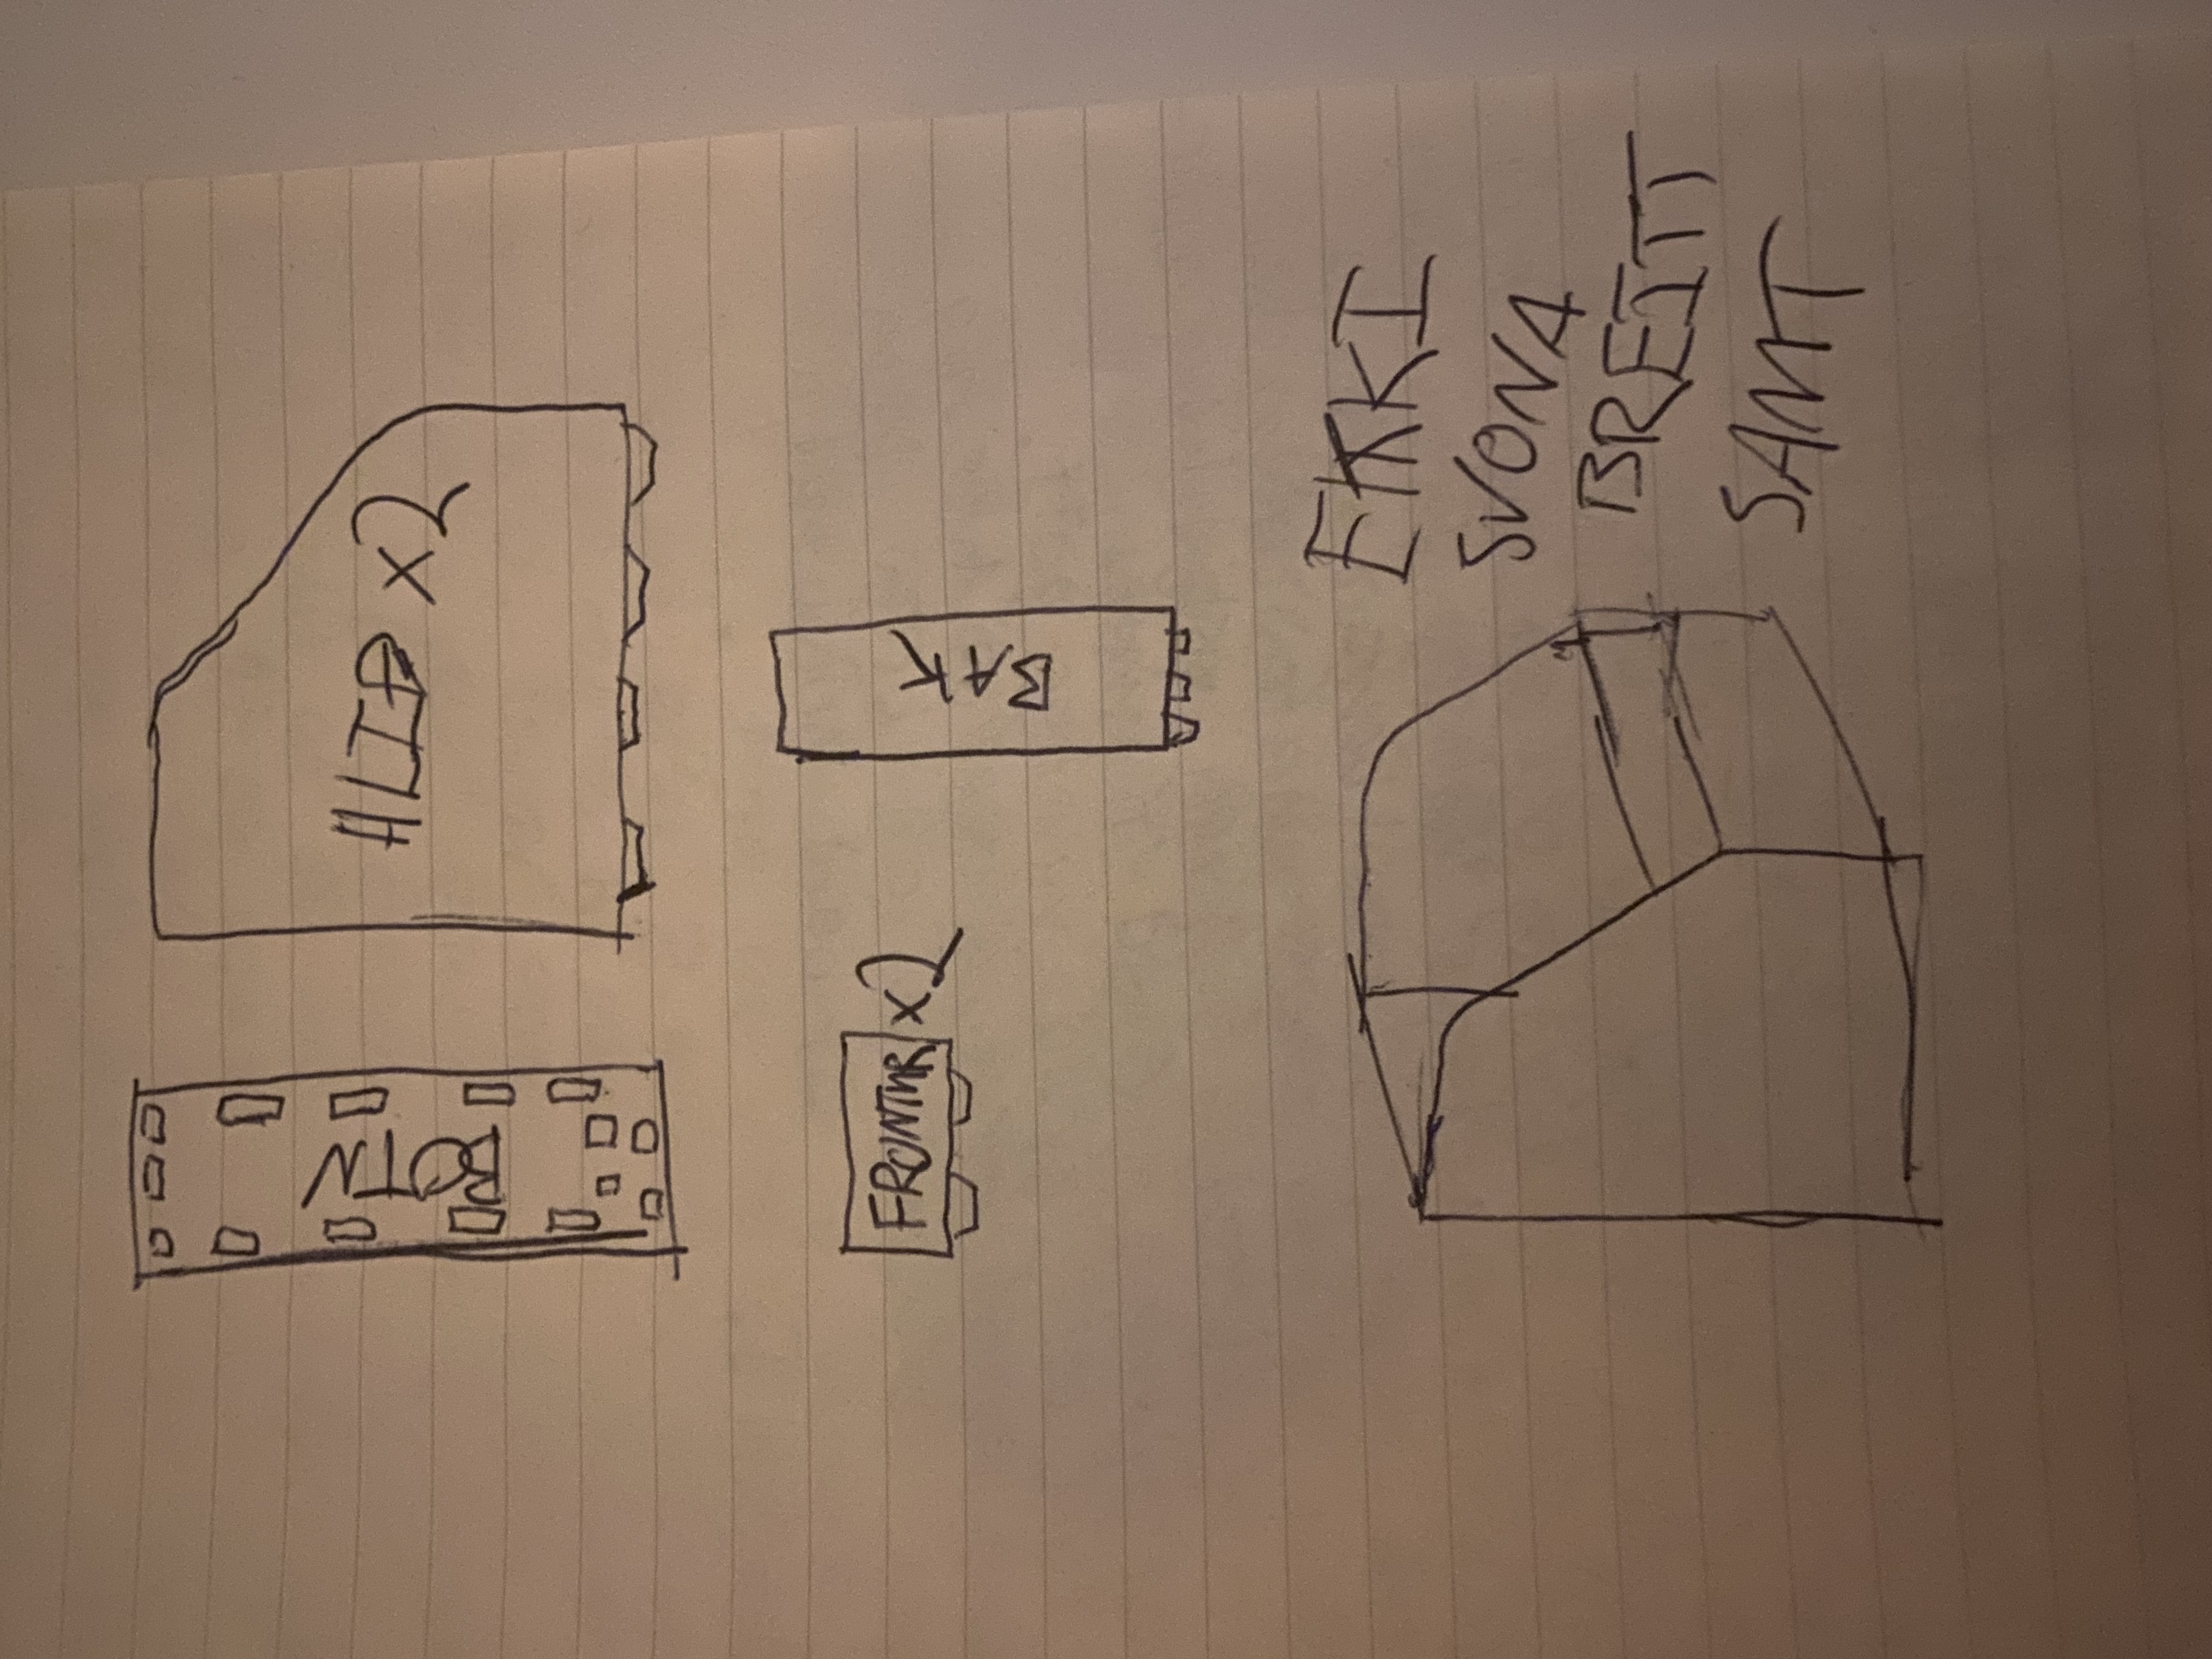 BOTN
HLIÐ x2
FRONTUR x2
BAK
EKKI
SVONA
BREITT
SAMT